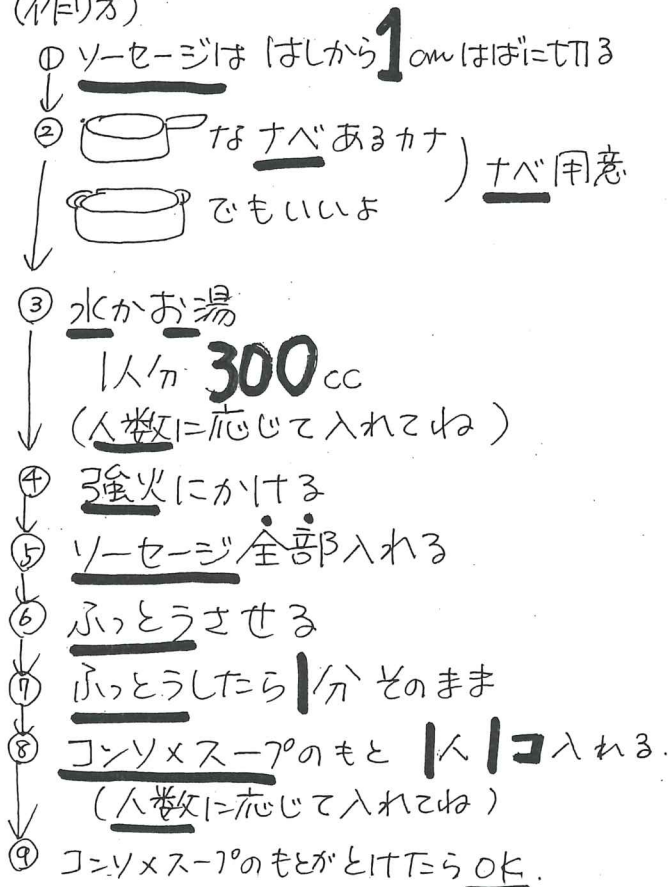 (作り方)
① ソーセージは はしから1cmはばに切る
② なナベあるカナ
でもいいよ
ナベ用意
③ 水かお湯
1人分 300cc
(人数に応じて入れてね)
④ 強火にかける
⑤ ソーセージ全部入れる
⑥ ふっとうさせる
⑦ ふっとうしたら1分そのまま
⑧ コンソメスープのもと 1人1コ入れる.
(人数に応じて入れてね)
⑨ コンソメスープのもとがとけたらOK.